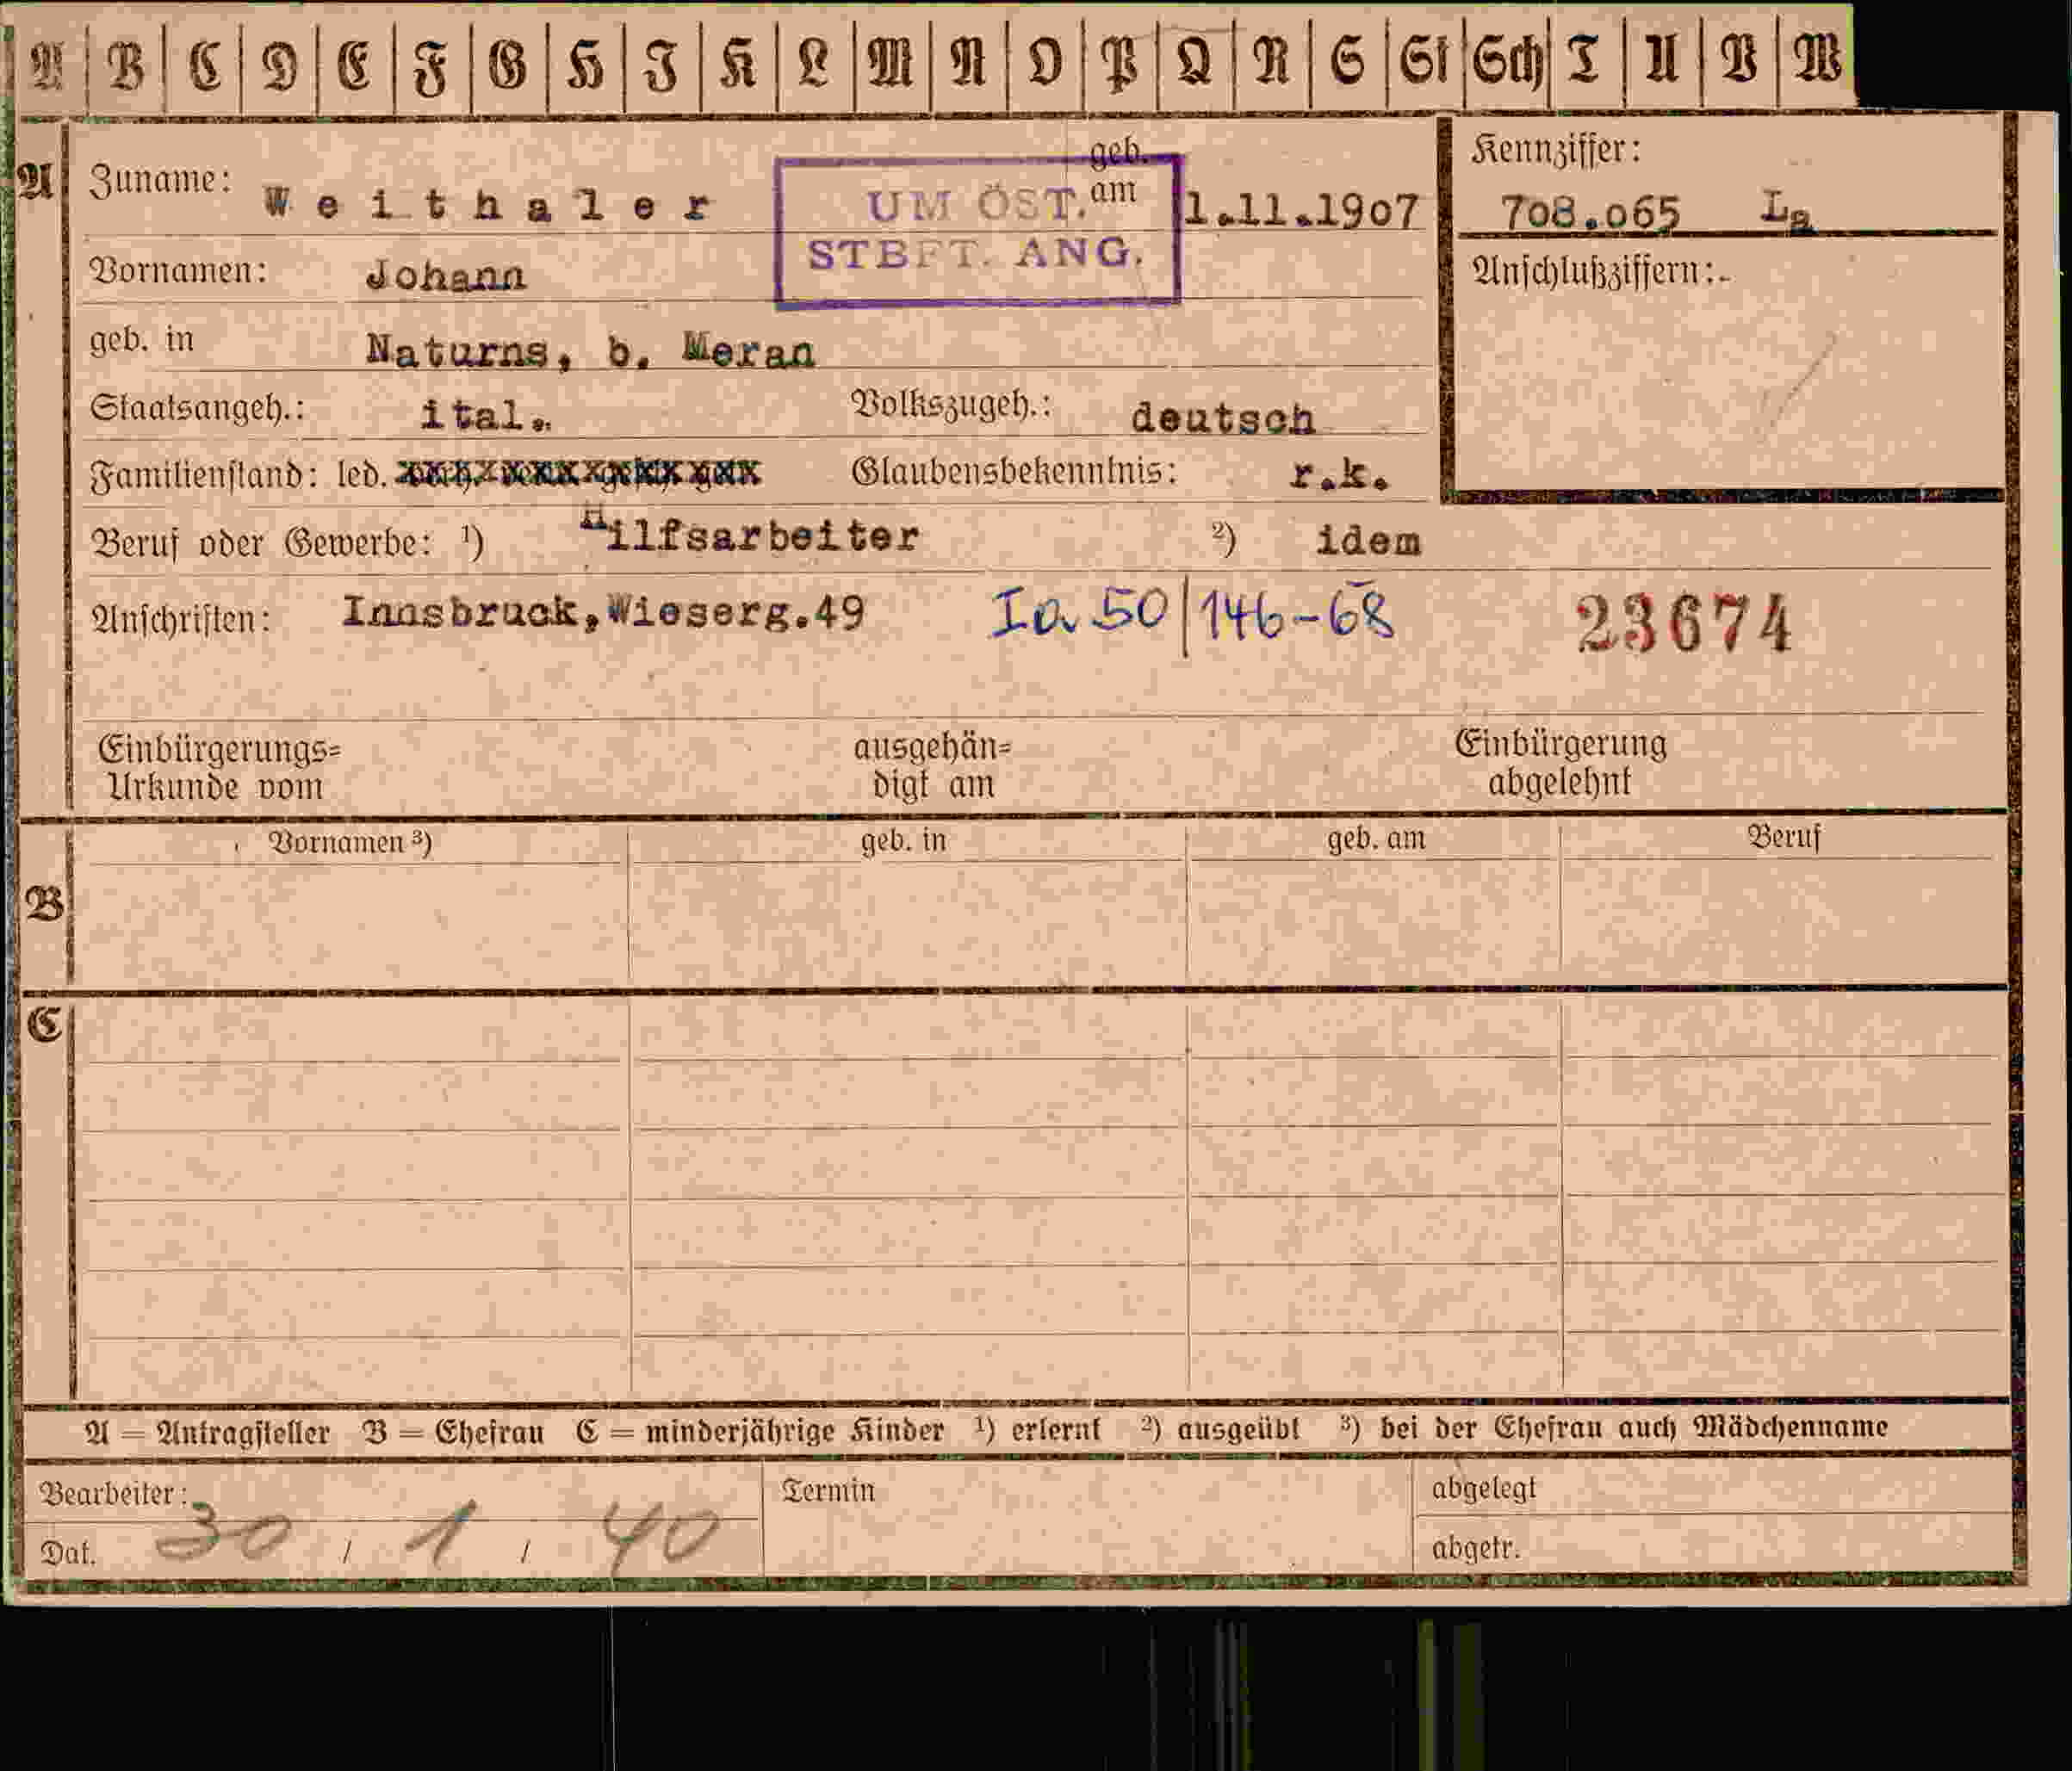 A B C D E F G H I K L M N O P Q R S St Sch T U V W
A Zuname: Weithaler geb. am 1.11.1907 Kennziffer:
UM ÖST. 708.065 La
STBFT. ANG.
Vornamen: Johann Anschlußziffern:
geb. in Naturns, b. Meran
Staatsangeh.: ital. Volkszugeh.: deutsch
Familienstand: led. Glaubensbekenntnis: r.k.
Beruf oder Gewerbe: ¹) Hilfsarbeiter ²) idem
Anschriften: Innsbruck,Wieserg.49 Ia 50/146-68 23674
Einbürgerungs= ausgehän= Einbürgerung
Urkunde vom digt am abgelehnt
Vornamen ³) geb. in geb. am Beruf
B
C
A = Antragsteller B = Ehefrau C = minderjährige Kinder ¹) erlernt ²) ausgeübt ³) bei der Ehefrau auch Mädchenname
Bearbeiter: Termin abgelegt
Dat. 30 / 1 / 40 abgetr.